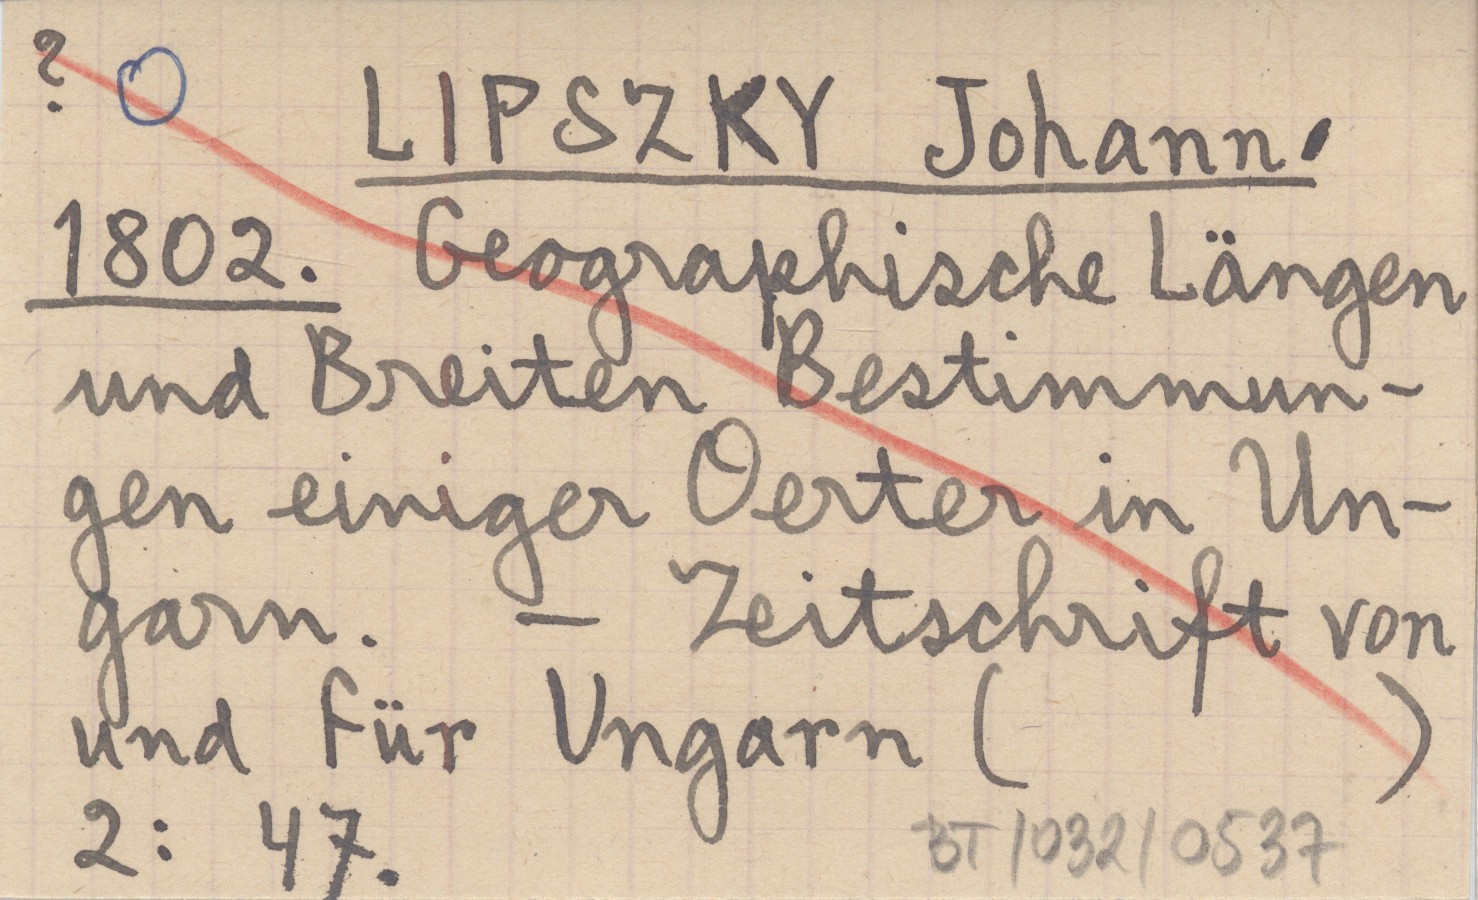 ?
LIPSZKY Johann.
1802. Geographische Längen
und Breiten Bestimmun-
gen einiger Oerter in Un-
garn. — Zeitschrift von
und für Ungarn ( )
2: 47.
BT/032/0537